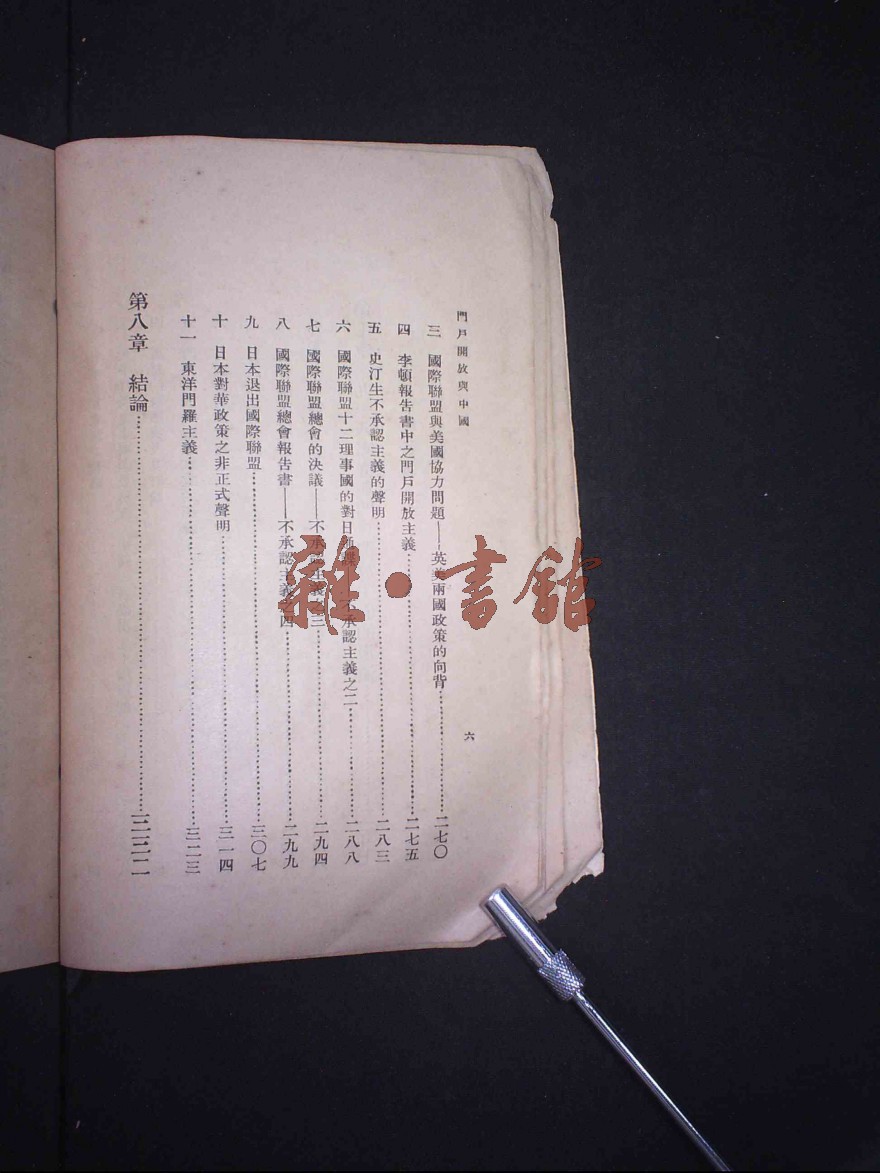 門戶開放與中國
六
三 國際聯盟與美國協力問題——英美兩國政策的向背……二七〇
四 李頓報告書中之門戶開放主義……二七五
五 史汀生不承認主義的聲明……二八三
六 國際聯盟十二理事國的對日 不承認主義之二……二八八
七 國際聯盟總會的決議——不承認主義之三……二九四
八 國際聯盟總會報告書——不承認主義之四……二九九
九 日本退出國際聯盟……三〇七
十 日本對華政策之非正式聲明……三一四
十一 東洋門羅主義……三二三
第八章 結論……
雜·書館